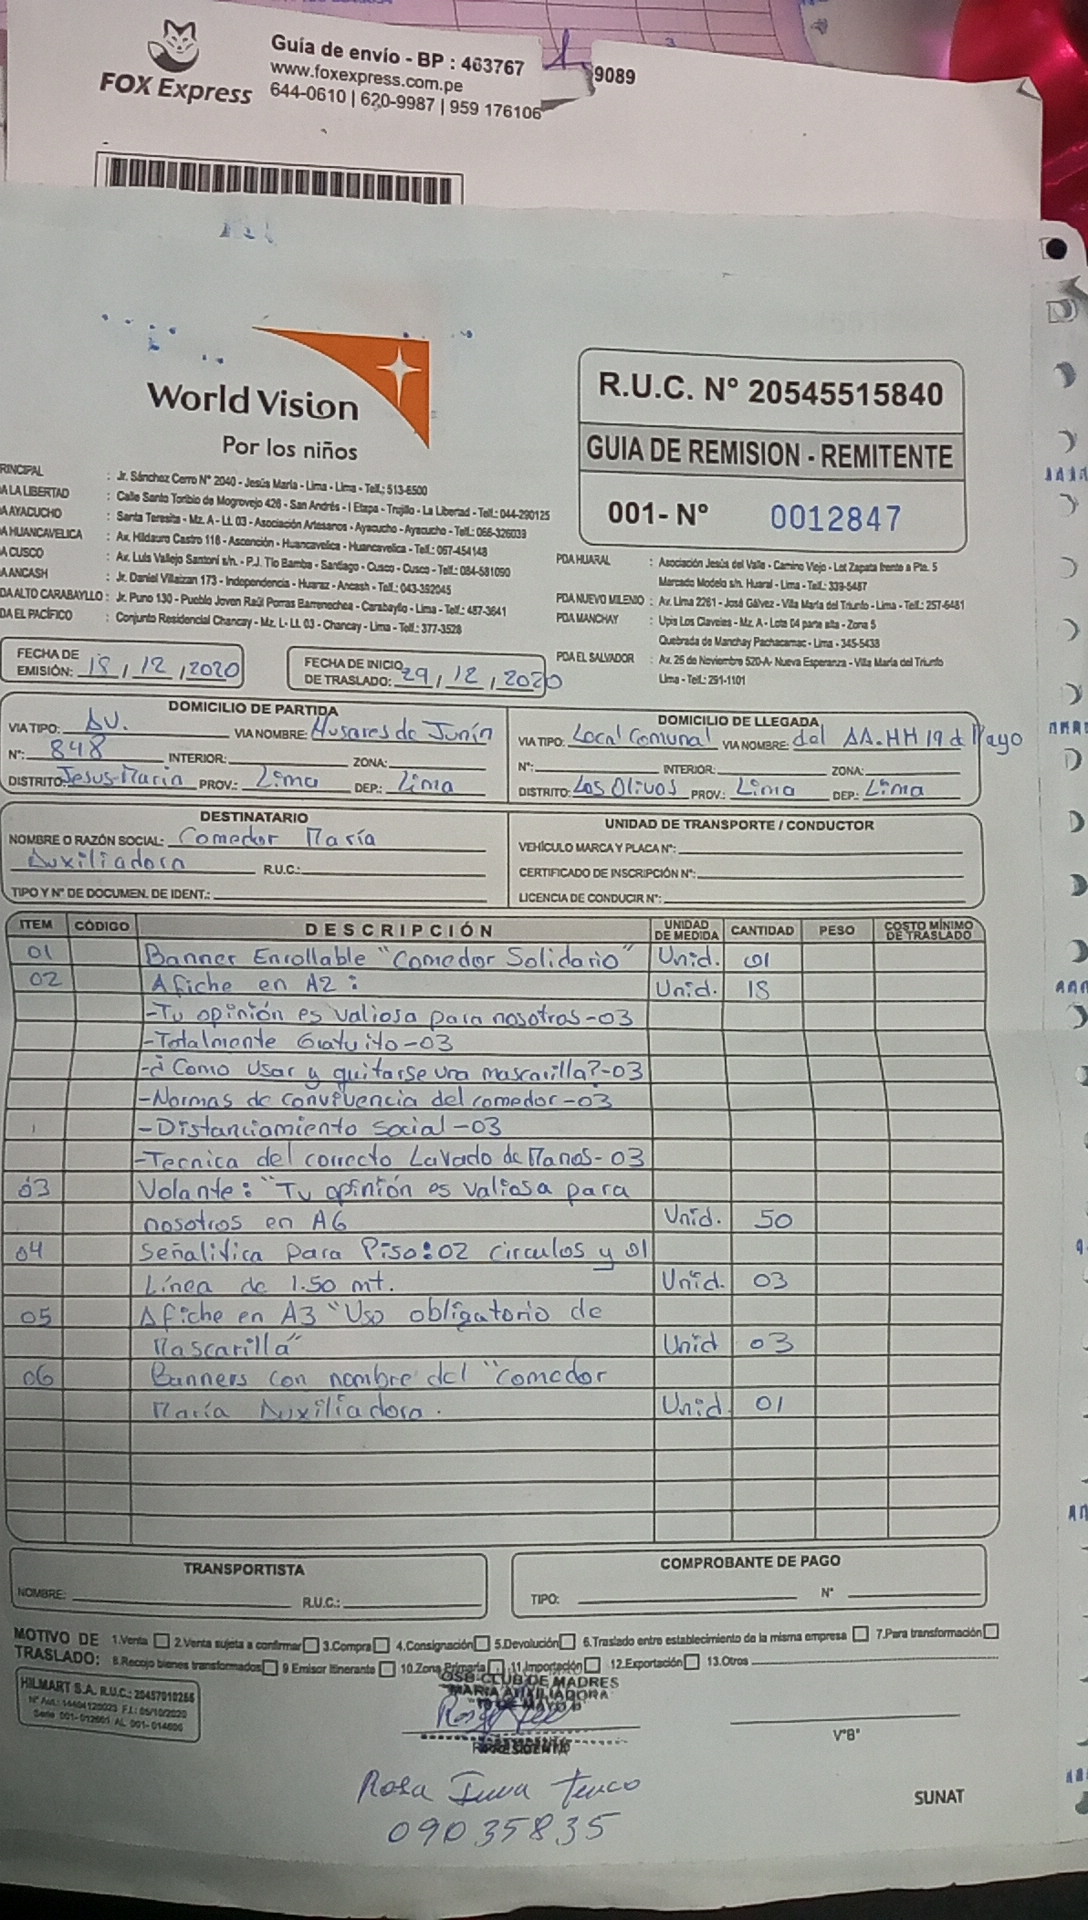 FOX Express
Guía de envío - BP : 463767
9089
www.foxexpress.com.pe
644-0610 | 620-9987 | 959 176106
World Vision
Por los niños
R.U.C. N° 20545515840
GUIA DE REMISION - REMITENTE
001- N° 0012847
RINCIPAL : Jr. Sánchez Cerro N° 2040 - Jesús María - Lima - Lima - Telf.: 513-6500
A LA LIBERTAD : Calle Santo Toribio de Mogrovejo 426 - San Andrés - I Etapa - Trujillo - La Libertad - Telf.: 044-290125
A AYACUCHO : Santa Teresita - Mz. A - Lt. 03 - Asociación Artesanos - Ayacucho - Ayacucho - Telf.: 066-326039
A HUANCAVELICA : Av. Hildauro Castro 118 - Ascención - Huancavelica - Huancavelica - Telf.: 067-454148
A CUSCO : Av. Luis Vallejo Santoni s/n. - P.J. Tio Bamba - Santiago - Cusco - Cusco - Telf.: 084-581090
A ANCASH : Jr. Daniel Villaizan 173 - Independencia - Huaraz - Ancash - Telf.: 043-392045
DA ALTO CARABAYLLO : Jr. Puno 130 - Pueblo Joven Raúl Porras Barrenechea - Carabayllo - Lima - Telf.: 487-3641
DA EL PACÍFICO : Conjunto Residencial Chancay - Mz. L - Lt. 03 - Chancay - Lima - Telf.: 377-3528
PDA HUARAL : Asociación Jesús del Valle - Camino Viejo - Lot Zapata frente a Pte. 5
Mercado Modelo s/n. Huaral - Lima - Telf.: 339-5487
PDA NUEVO MILENIO : Av. Lima 2261 - José Gálvez - Villa María del Triunfo - Lima - Telf.: 257-6481
PDA MANCHAY : Upis Los Claveles - Mz. A - Lote 04 parte alta - Zona 5
Quebrada de Manchay Pachacamac - Lima - 345-5438
PDA EL SALVADOR : Av. 26 de Noviembre 520-A- Nueva Esperanza - Villa María del Triunfo
Lima - Telf.: 291-1101
FECHA DE
EMISIÓN: 18 / 12 / 2020
FECHA DE INICIO
DE TRASLADO: 29 / 12 / 2020
DOMICILIO DE PARTIDA
VIA TIPO: AV. VIA NOMBRE: Husares de Junín
N°: 848 INTERIOR: ZONA:
DISTRITO: Jesus-Maria PROV.: Lima DEP.: Lima
DOMICILIO DE LLEGADA
VIA TIPO: Local Comunal VIA NOMBRE: del AA.HH 19 d Mayo
N°: INTERIOR: ZONA:
DISTRITO: Los Olivos PROV.: Lima DEP.: Lima
DESTINATARIO
NOMBRE O RAZÓN SOCIAL: Comedor María
Auxiliadora R.U.C.:
TIPO Y N° DE DOCUMEN. DE IDENT.:
UNIDAD DE TRANSPORTE / CONDUCTOR
VEHÍCULO MARCA Y PLACA N°:
CERTIFICADO DE INSCRIPCIÓN N°:
LICENCIA DE CONDUCIR N°:
ITEM CÓDIGO DESCRIPCIÓN UNIDAD DE MEDIDA CANTIDAD PESO COSTO MÍNIMO DE TRASLADO
01 Banner Enrollable "Comedor Solidario" Unid. 01
02 Afiche en A2 : Unid. 18
-Tu opinión es valiosa para nosotros-03
-Totalmente Gratuito-03
-¿ Como usar y quitarse una mascarilla?-03
-Normas de convivencia del comedor-03
-Distanciamiento social-03
-Tecnica del correcto Lavado de Manos-03
03 Volante : "Tu opinión es valiosa para
nosotros en A6 Unid. 50
04 Señalitica para Piso:02 circulos y 01
Línea de 1.50 mt. Unid. 03
05 Afiche en A3 "Uso obligatorio de
Mascarilla" Unid 03
06 Banners con nombre del "comedor
María Auxiliadora. Unid. 01
TRANSPORTISTA
NOMBRE: R.U.C.:
COMPROBANTE DE PAGO
TIPO: N°
MOTIVO DE TRASLADO: 1.Venta 2.Venta sujeta a confirmar 3.Compra 4.Consignación 5.Devolución 6.Traslado entre establecimiento de la misma empresa 7.Para transformación
8.Recojo bienes transformados 9.Emisor Itinerante 10.Zona Primaria 11.Importación 12.Exportación 13.Otros
HILMART S.A. R.U.C.: 20457010256
N° Aut.: 14404120023 F.I.: 05/10/2020
Serie 001-012601 AL 001-014600
OSB CLUB DE MADRES
"MARIA AUXILIADORA
"19 DE MAYO"
PRESIDENTA
V°B°
Rosa
09035835
SUNAT